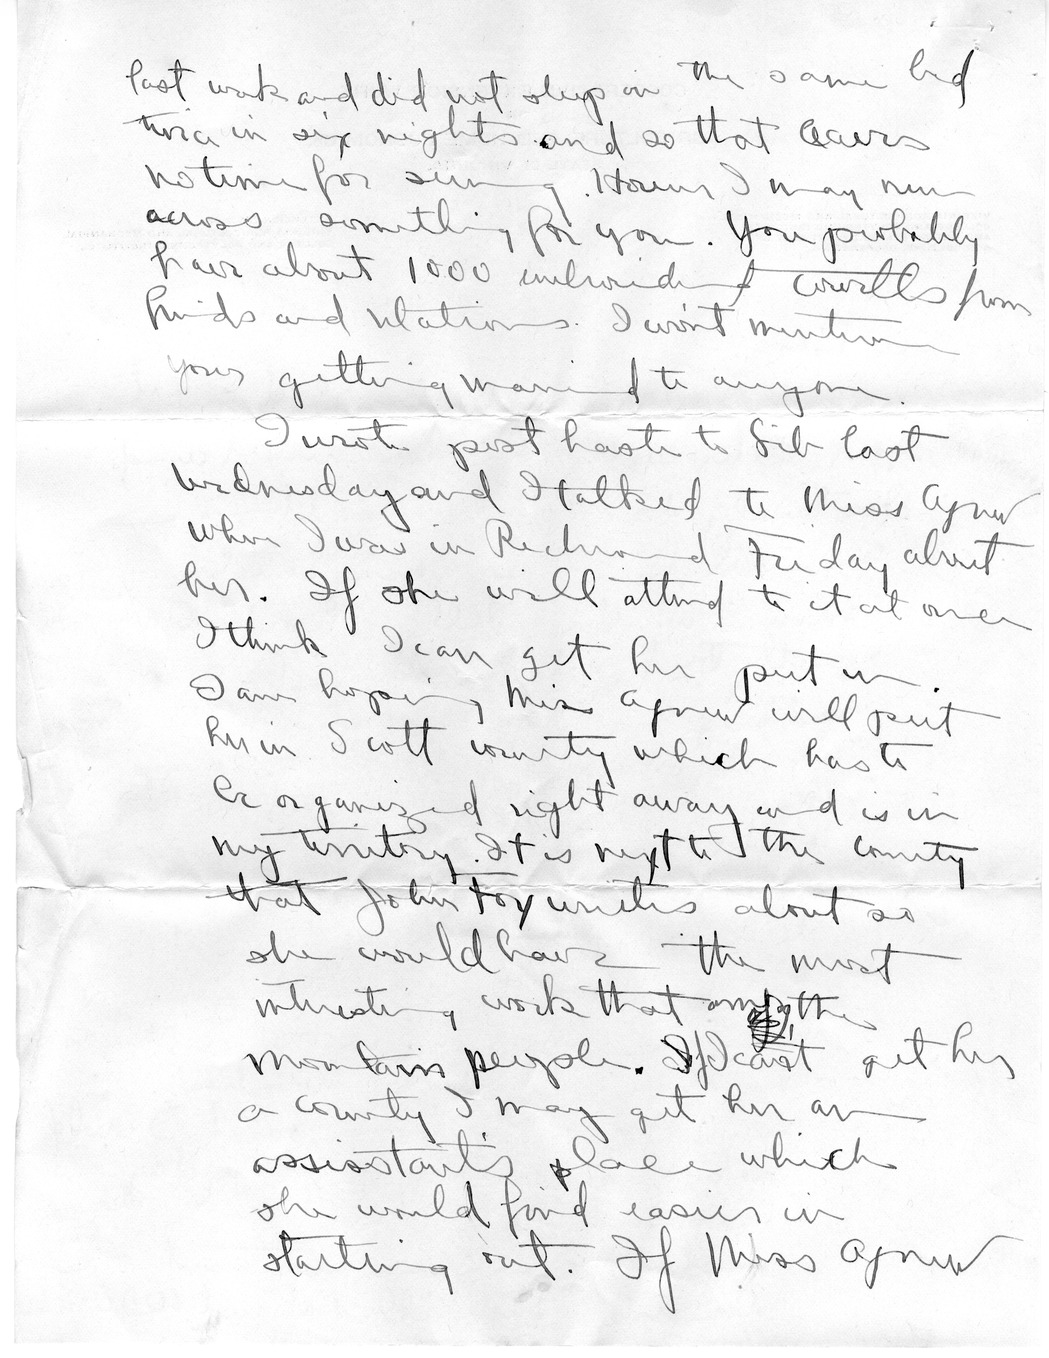 last week and did not sleep in the same bed
twice in six nights and so that leaves
no time for sewing. However I may run
across something for you. You probably
have about 1000 unhemmed towells from
friends and relations. I won't mention
your getting married to anyone.
I wrote post haste to Sib last
Wednesday and I talked to Miss Agnew
when I was in Richmond Friday about
her. If she will attend to it at once
I think I can get her put in.
I am hoping Miss Agnew will put
her in Scott county which has to
be organized right away and is in
my territory. It is next to the county
that John Fox writes about so
she would have the most
interesting work that among the
Mountain people. If I cant get her
a county I may get her an
assisstant's place which
she would find easier in
starting out. If Miss Agnew